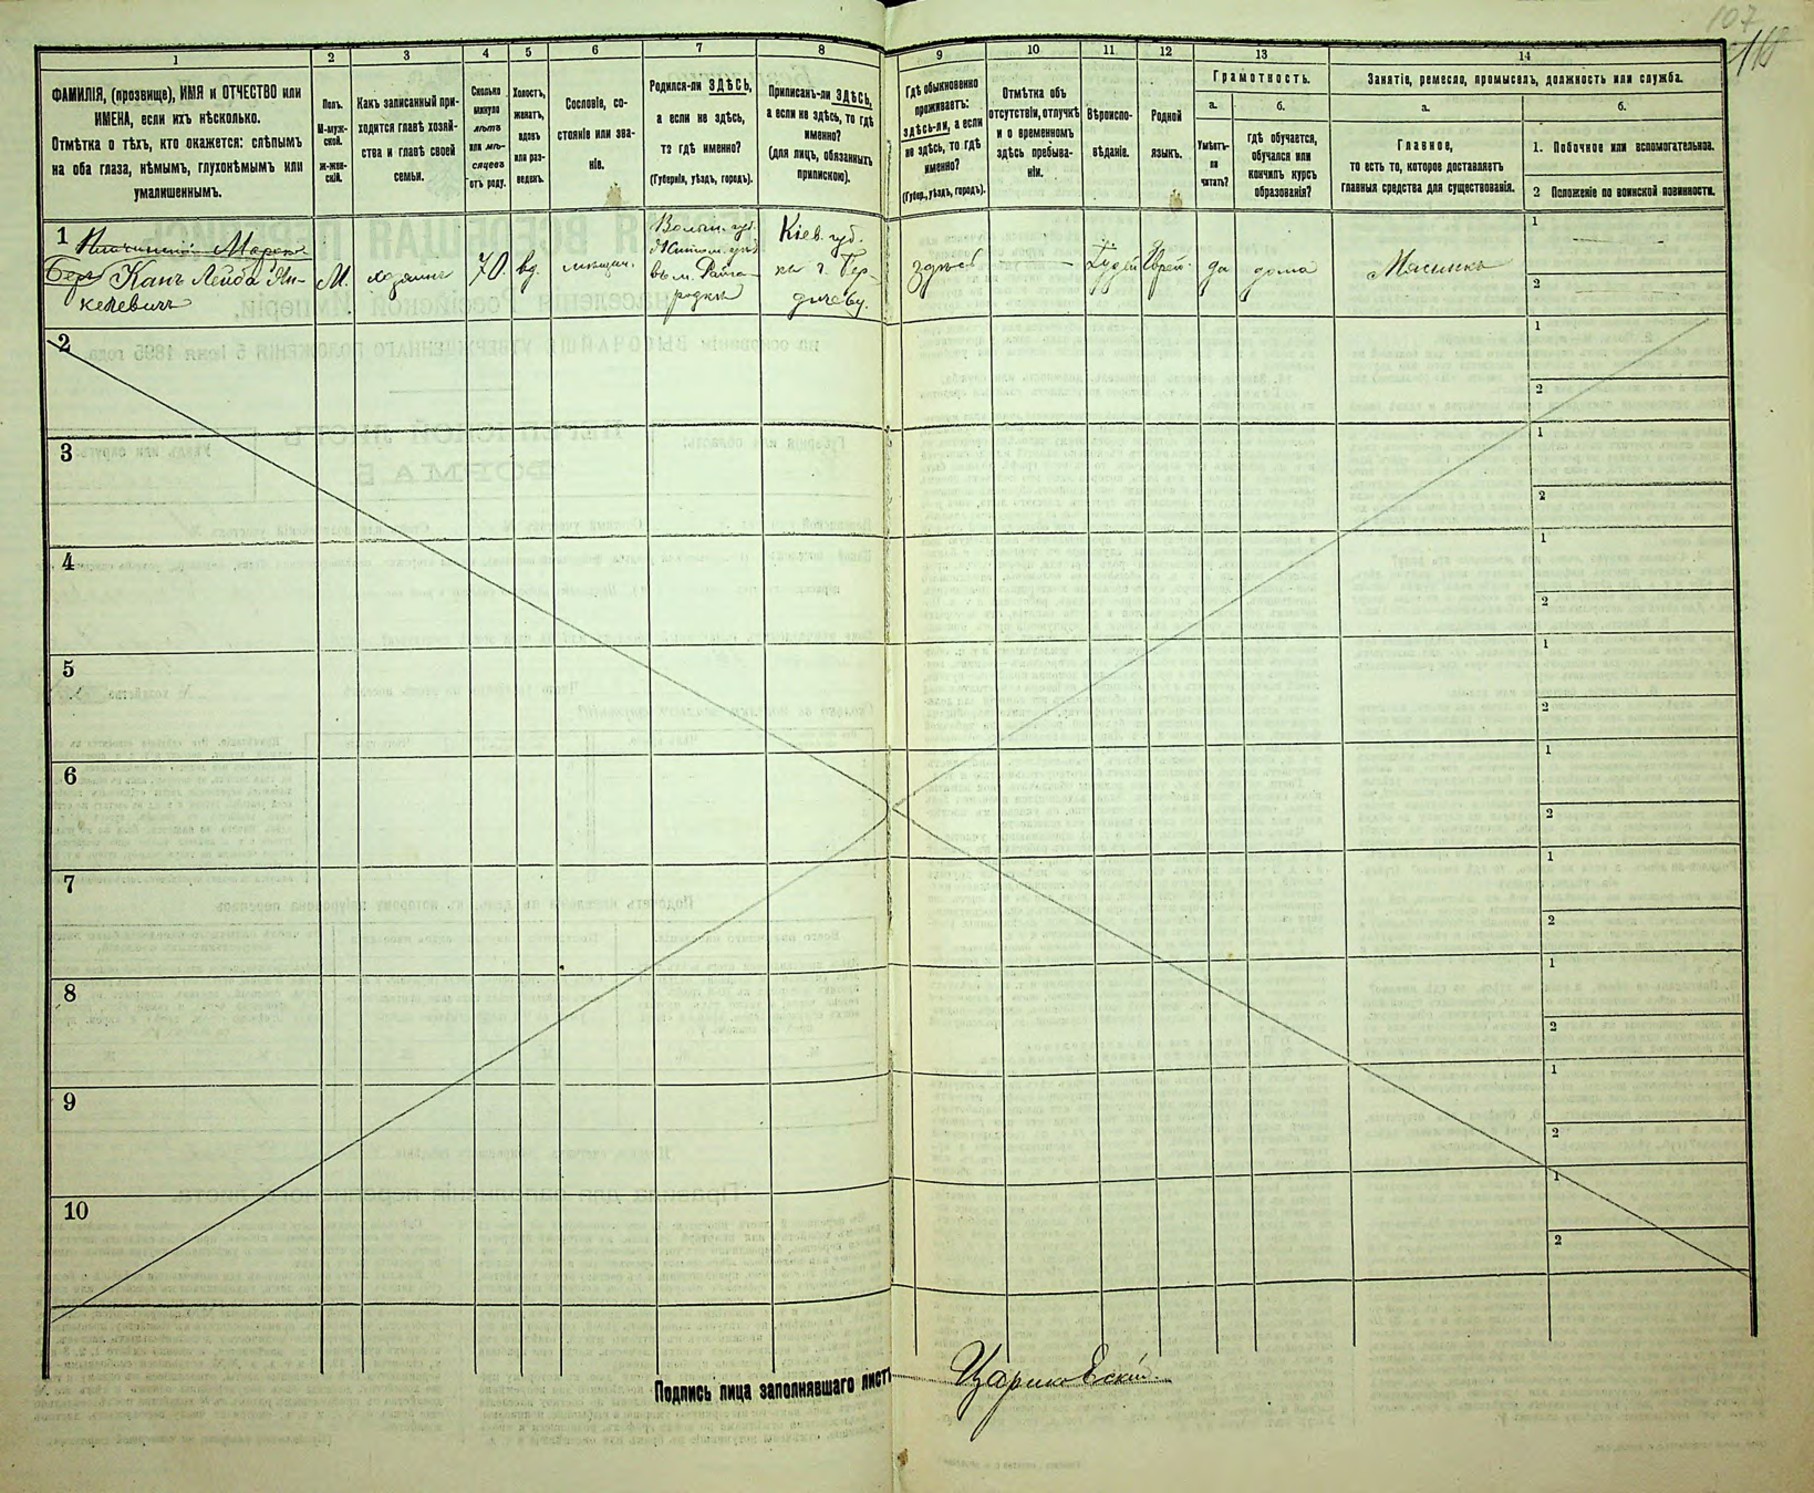 107
110
1
2
3
4
5
6
7
8
9
10
11
12
13
14
ФАМИЛІЯ, (прозвище), ИМЯ и ОТЧЕСТВО или
ИМЕНА, если ихъ нѣсколько.
Отмѣтка о тѣхъ, кто окажется: слѣпымъ
на оба глаза, нѣмымъ, глухонѣмымъ или
умалишеннымъ.
Полъ.
М-муж-
ской.
Ж-жен-
скій.
Какъ записанный при-
ходится главѣ хозяй-
ства и главѣ своей
семьи.
Сколько
минуло
лѣтъ
или мѣ-
сяцевъ
отъ роду.
Холостъ,
женатъ,
вдовъ
или раз-
веденъ.
Сословіе, со-
стояніе или зва-
ніе.
Родился-ли ЗДѢСЬ,
а если не здѣсь,
то гдѣ именно?
(Губернія, уѣздъ, городъ).
Приписанъ-ли ЗДѢСЬ,
а если не здѣсь, то гдѣ
именно?
(для лицъ, обязанныхъ
припискою).
Гдѣ обыкновенно
проживаетъ:
здѣсь-ли, а если
не здѣсь, то гдѣ
именно?
(Губер., уѣздъ, городъ).
Отмѣтка объ
отсутствіи, отлучкѣ
и о временномъ
здѣсь пребыва-
ніи.
Вѣроиспо-
вѣданіе.
Родной
языкъ.
Грамотность.
а.
Умѣетъ-
ли
читать?
б.
гдѣ обучается,
обучался или
кончилъ курсъ
образованія?
Занятіе, ремесло, промыселъ, должность или служба.
а.
Главное,
то есть то, которое доставляетъ
главныя средства для существованія.
б.
1. Побочное или вспомогательное.
2 Положеніе по воинской повинности.
1
Канъ Лейба Ян-
келевичъ
М.
хозяинъ
70.
вд.
мѣщан.
Волын. губ.
Житом. уѣзд
въ м. Райго-
родкѣ
Кіев. губ.
къ г. Бер-
дичеву.
здѣсь
Іудей
Еврей.
да
дома
Мясникъ
1
2
2
1
2
3
1
2
4
1
2
5
1
2
6
1
2
7
1
2
8
1
2
9
1
2
10
1
2
Подпись лица заполнявшаго листъ